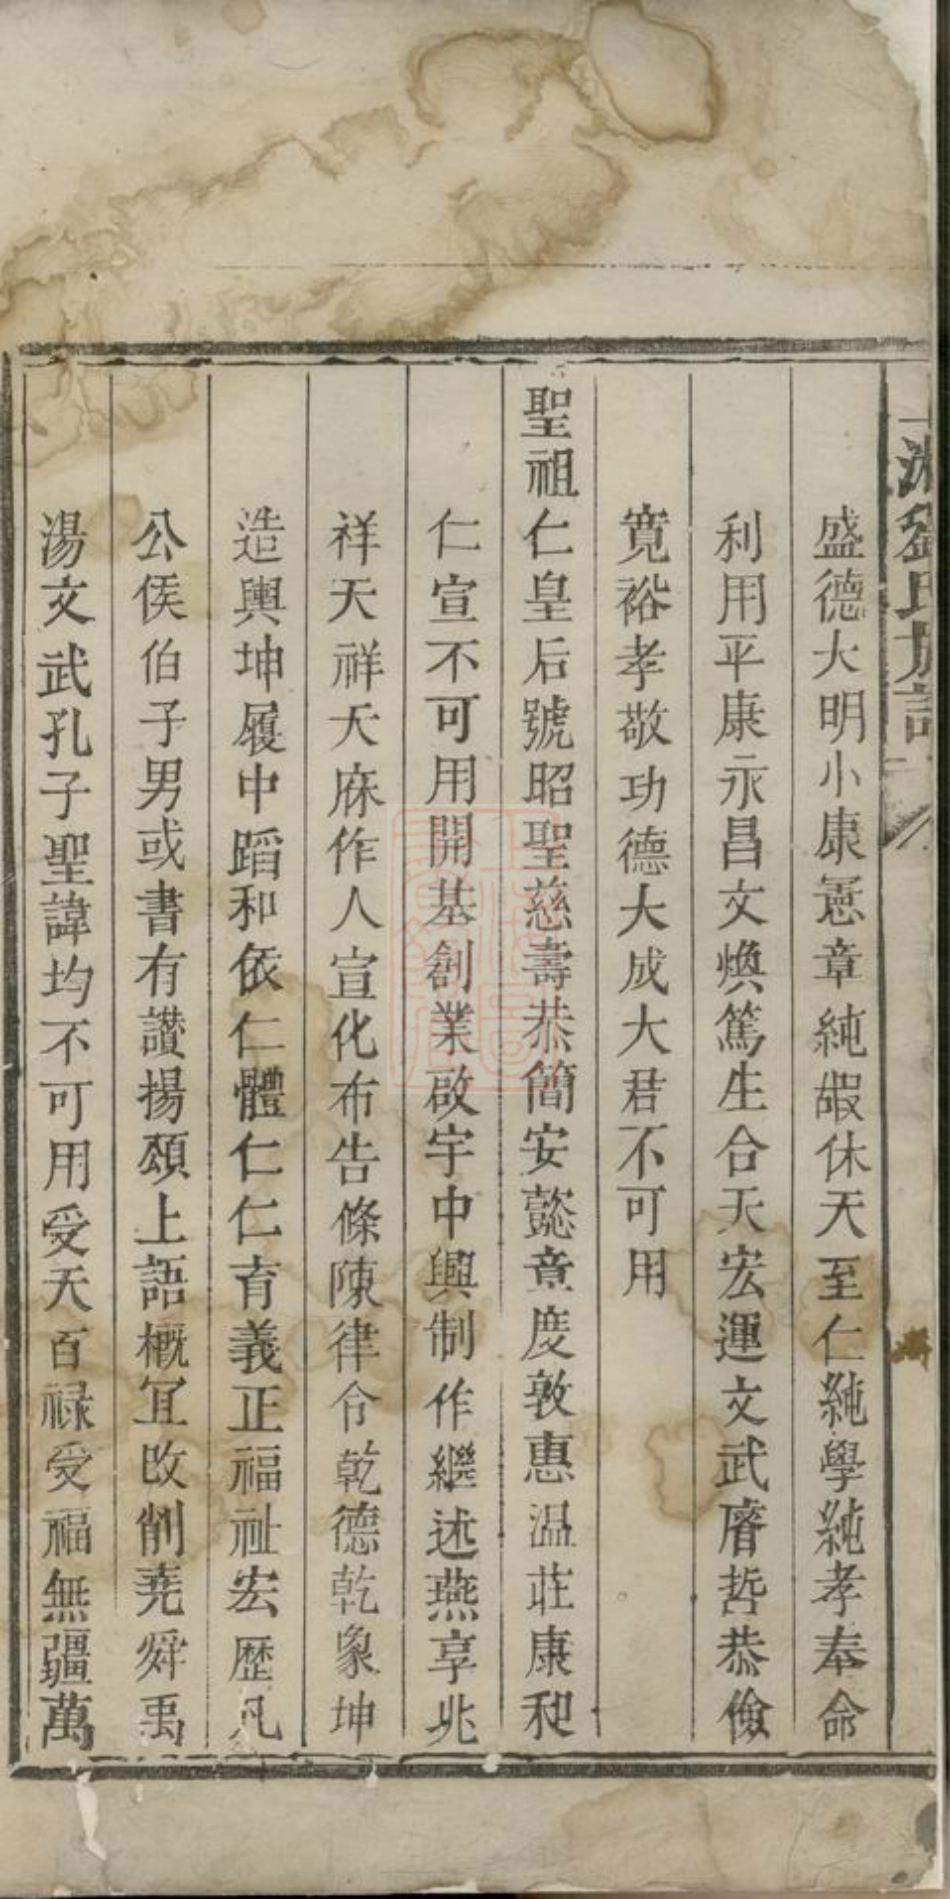 上湘劉氏族譜
盛德大明小康憲章純嘏休天至仁純學純孝奉命
利用平康永昌文煥篤生合天宏運文武睿哲恭儉
寬裕孝敬功德大成大君不可用
聖祖仁皇后號昭聖慈壽恭簡安懿章度敦惠温莊康和
仁宣不可用開基創業啟宇中興制作繼述燕享兆
祥天祥天庥作人宣化布告條陳律令乾德乾象坤
造輿坤履中蹈和依仁體仁仁育義正福祉宏歷凡
公侯伯子男或書有讚揚頌上語概冝改削堯舜禹
湯文武孔子聖諱均不可用受天百祿受福無疆萬